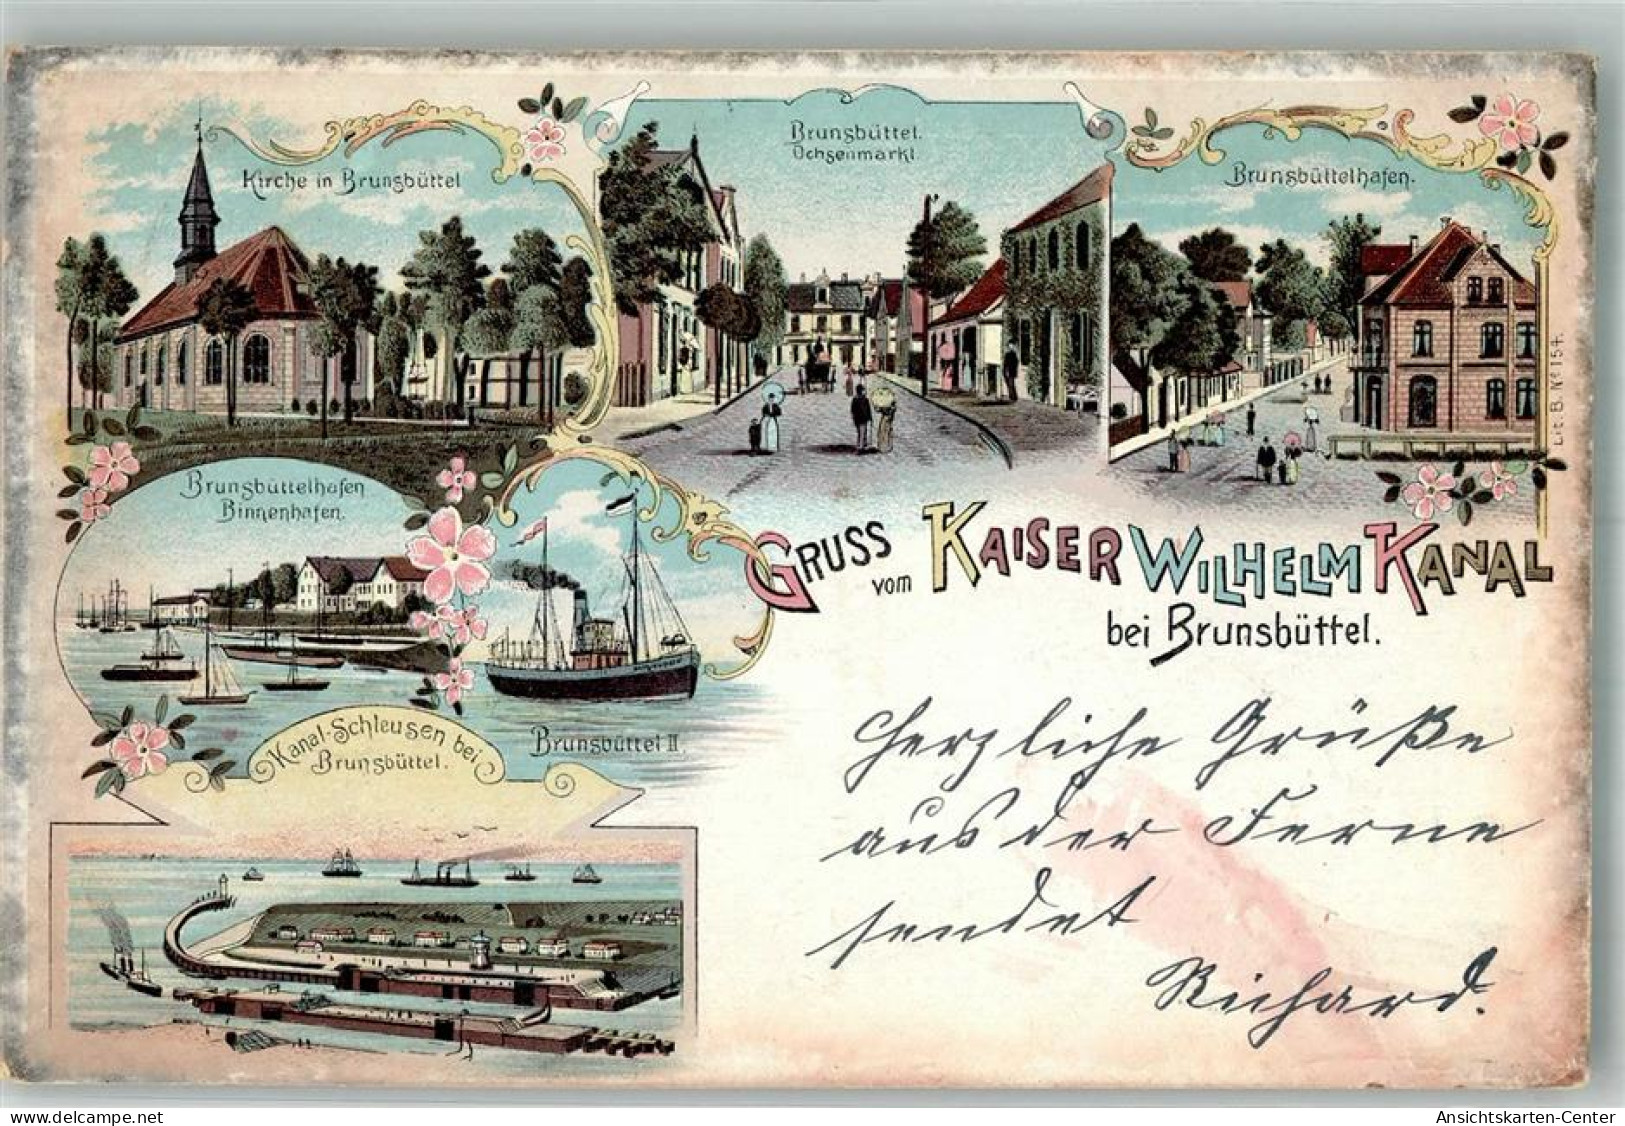 Kirche in Brunsbüttel
Brunsbüttel.
Ochsenmarkt
Brunsbüttelhafen.
Lit. B. No 154.
Brunsbüttelhafen
Binnenhafen.
Gruss vom Kaiser Wilhelm Kanal
bei Brunsbüttel.
Brunsbüttel II.
Kanal-Schleusen bei
Brunsbüttel.
Herzliche Grüße
aus der Ferne
sendet
Richard.
www.delcampe.net
Ansichtskarten-Center